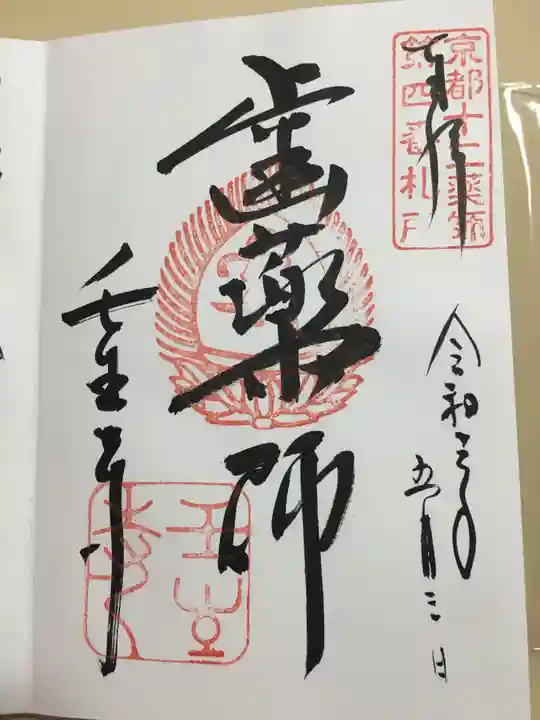 奉拝
京都十二薬師
第四番札所
令和元年
五月三日
歯薬師
壬生寺